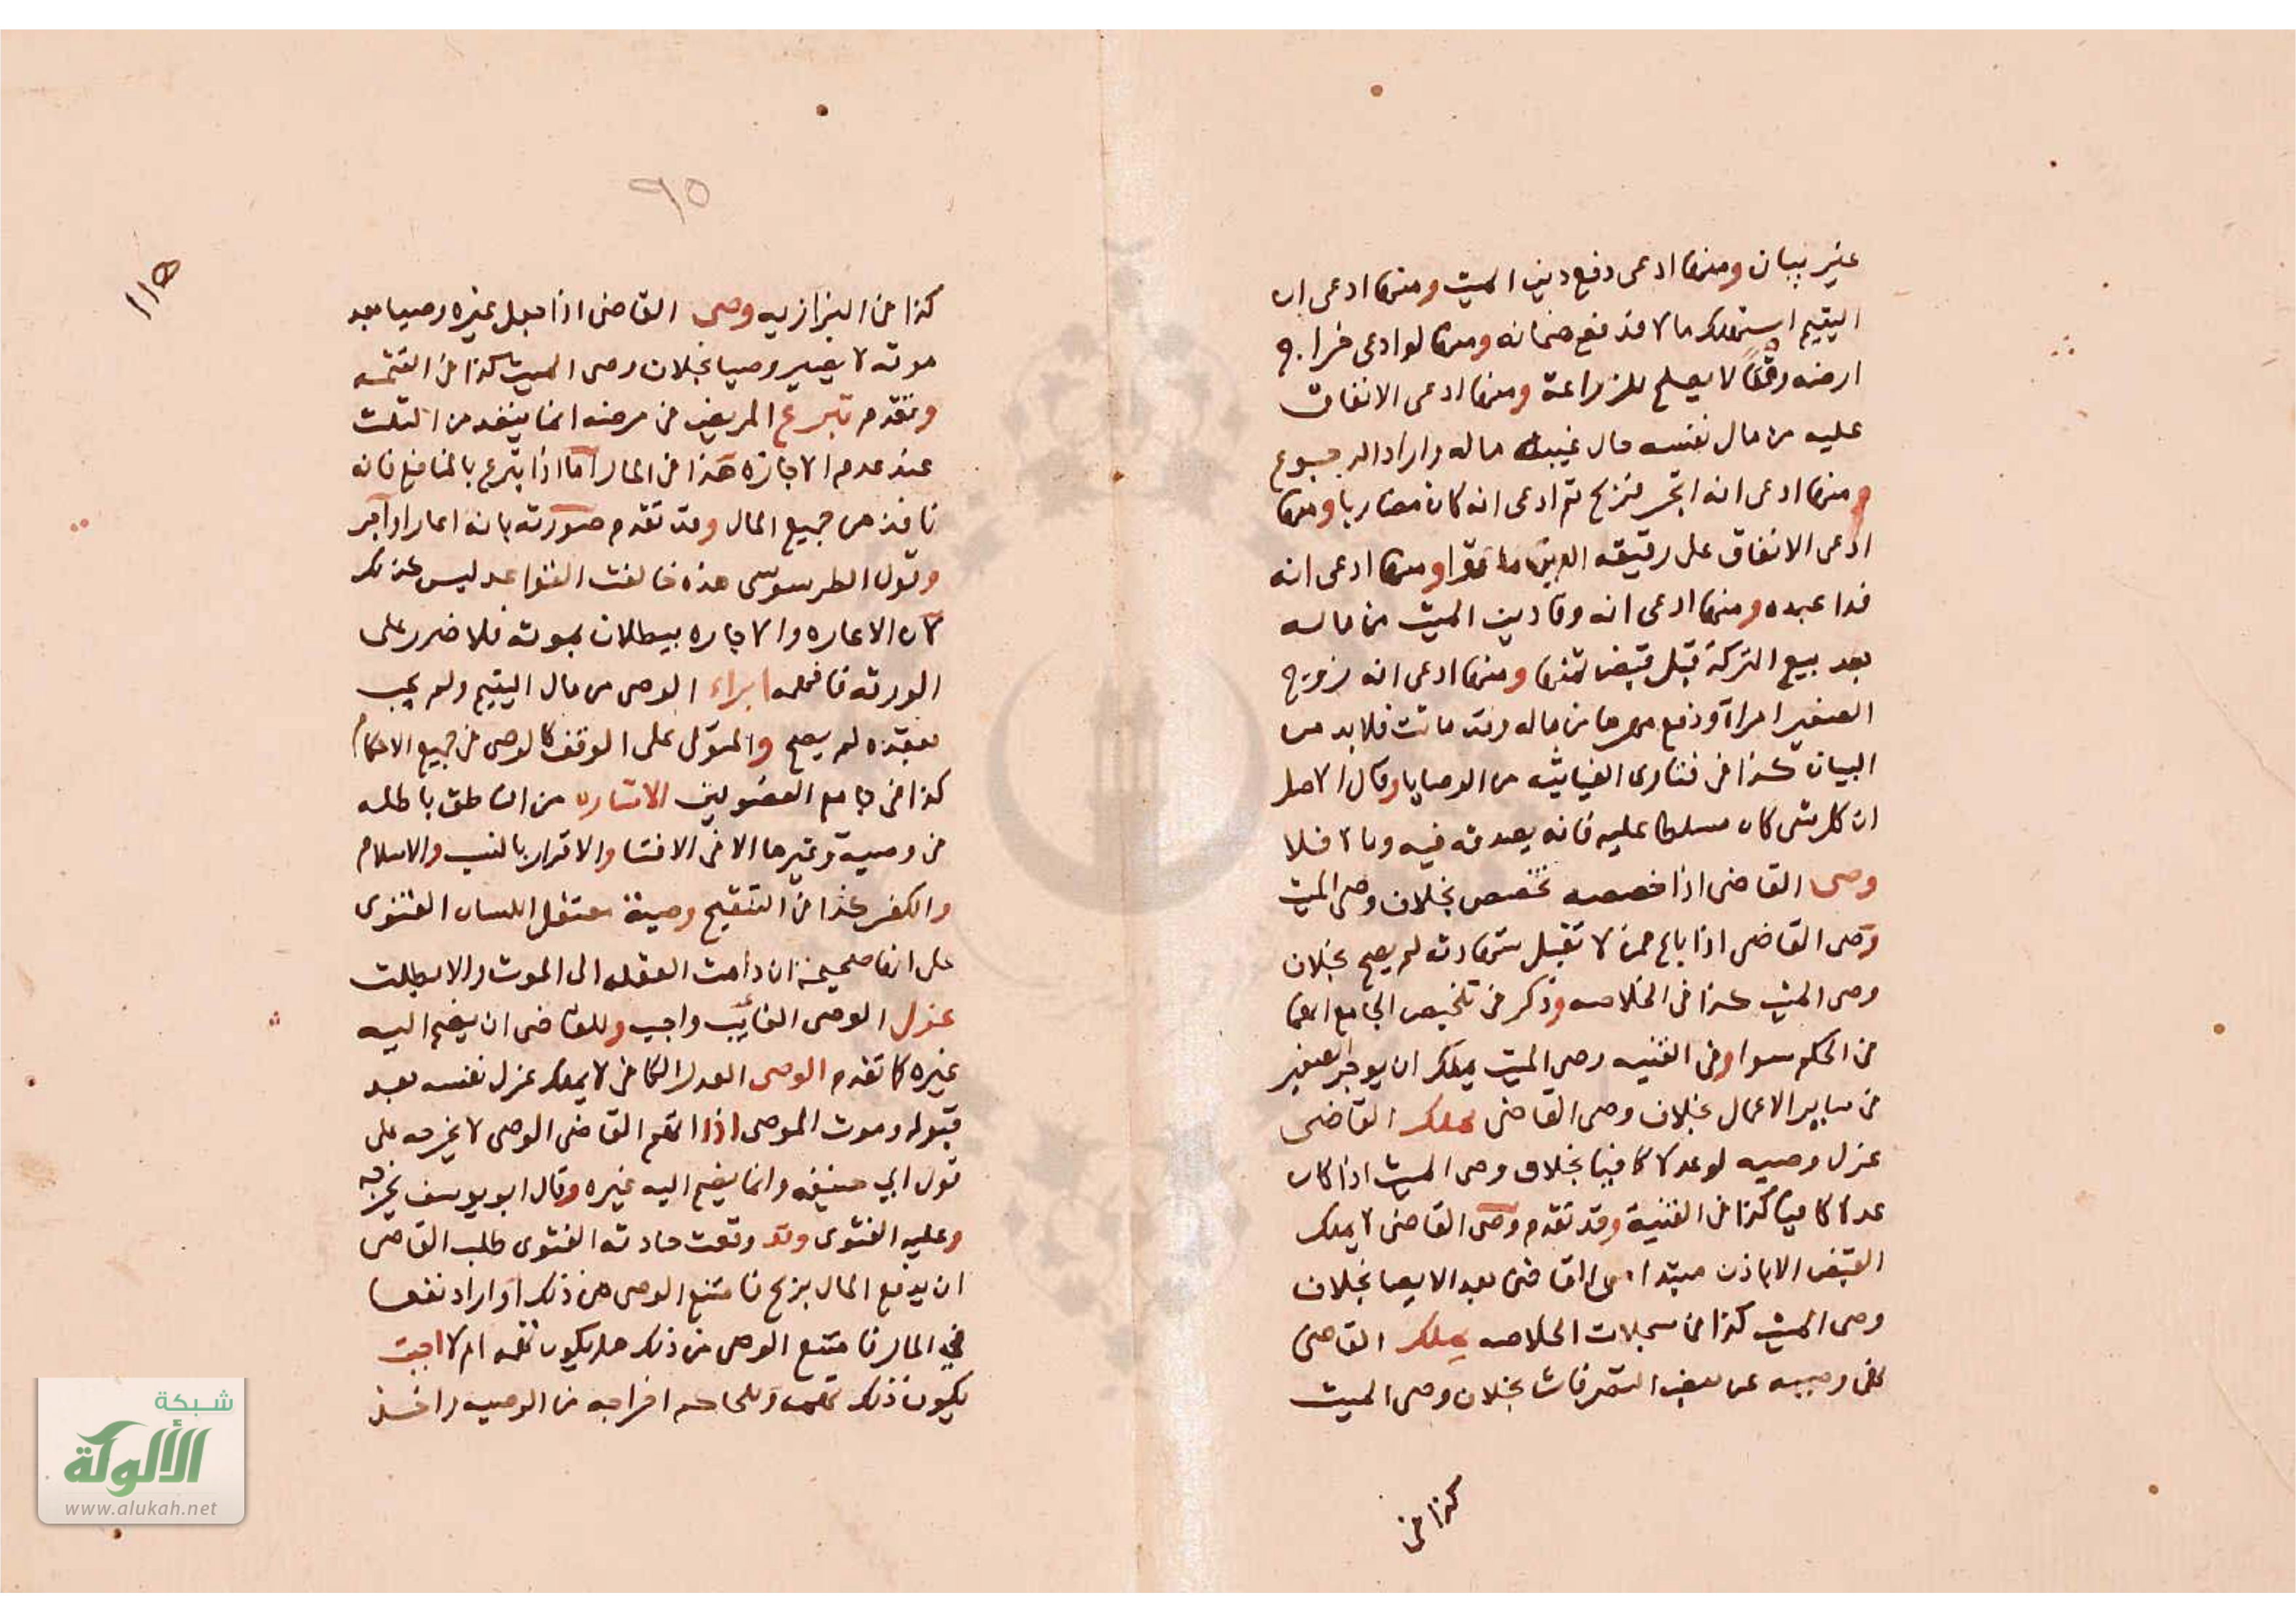 غير بيان ومنها ادعى دفع دين الميت ومنها ادعى ان
اليتيم استهلك مالا فدفع ضمانه ومنها لو ادعى خراج
ارضه وقتا لا يصلح للزراعة ومنها ادعى الانفاق
عليه من مال نفسه حال غيبة ماله واراد الرجوع
ومنها ادعى انه اتجر فربح ثم ادعى انه كان مضاربا ومنها
ادعى الانفاق على رقيقه الذين ماتوا ومنها ادعى انه
فدا عبده ومنها ادعى انه وفا دين الميت من ماله
بعد بيع التركة قبل قبض ثمنها ومنها ادعى انه زوج
الصغير امراة ودفع مهرها من ماله وقد ماتت فلا بد من
البيان كذا في فتاوى الغياثيه من الوصايا وقال الاصل
ان كل شي كان مسلطا عليه فانه يصدق فيه وما لا فلا
وصى القاضى اذا خصصه تخصص بخلاف وصى الميت
وصى القاضى اذا باع ممن لا تقبل شهادته لم يصح بخلاف
وصى الميت كذا فى الخلاصه وذكر فى تلخيص الجامع انهما
فى الحكم سوا وفى القنيه وصى الميت يملك ان يوجر الصغير
فى ساير الاعمال بخلاف وصى القاضى يملك القاضى
عزل وصيه لو عدلا كافيا بخلاف وصى الميت اذا كان
عدلا كافيا كذا فى القنية وقد تقدم وصى القاضى لا يملك
القبض الا باذن مبتدا من القاضى بعد الايصا بخلاف
وصى الميت كذا فى سجلات الخلاصه يملك القاضى
نهى وصيه عن بعض التصرفات بخلاف وصى الميت
كذا فى
٩٥
١١٥
كذا فى البزازيه وصى القاضى اذا جعل غيره وصيا بعد
موته لا يصير وصيا بخلاف وصى الميت كذا فى التتمه
وتقدم تبرع المريض فى مرضه انما ينفد من الثلث
عند عدم الاجازه هذا فى المال اما اذا تبرع بالمنافع فانه
نافذ من جميع المال وقد تقدم صورته بانه اعار او آجر
وقول الطرسوسى هذه خالفت القواعد ليس كذلك
لان الاعاره والاجاره يبطلان بموته فلا ضرر على
الورثه فافهمه ابراء الوصى من مال اليتيم ولم يجب
بعقده لم يصح والمتولى على الوقف كالوصى فى جميع الاحكام
كذا فى جامع الفصولين الاشاره من الناطق باطله
فى وصية وغيرها الا فى الافتا والاقرار بالنسب والاسلام
والكفر كذا فى التنقيح وصية معتقل اللسان الفتوى
على انها صحيحة ان دامت العقله الى الموت والا بطلت
عزل الوصى الخائن واجب وللقاضى ان يضم اليه
غيره كما تقدم الوصى العدل الكافى لا يملك عزل نفسه بعد
قبوله وموت الموصى اذا اتهم القاضى الوصى لا يخرجه على
قول ابي حنيفه وانما يضم اليه غيره وقال ابو يوسف يخرجه
وعليه الفتوى وقد وقعت حادثه الفتوى طلب القاضى
ان يدفع المال بربح فامتنع الوصى من ذلك او اراد نفعها
في المال فامتنع الوصى من ذلك هل يكون تهمه ام لا اجبت
يكون ذلك تهمه وللحاكم اخراجه من الوصيه واخذ
شبكة
الألوكة
www.alukah.net